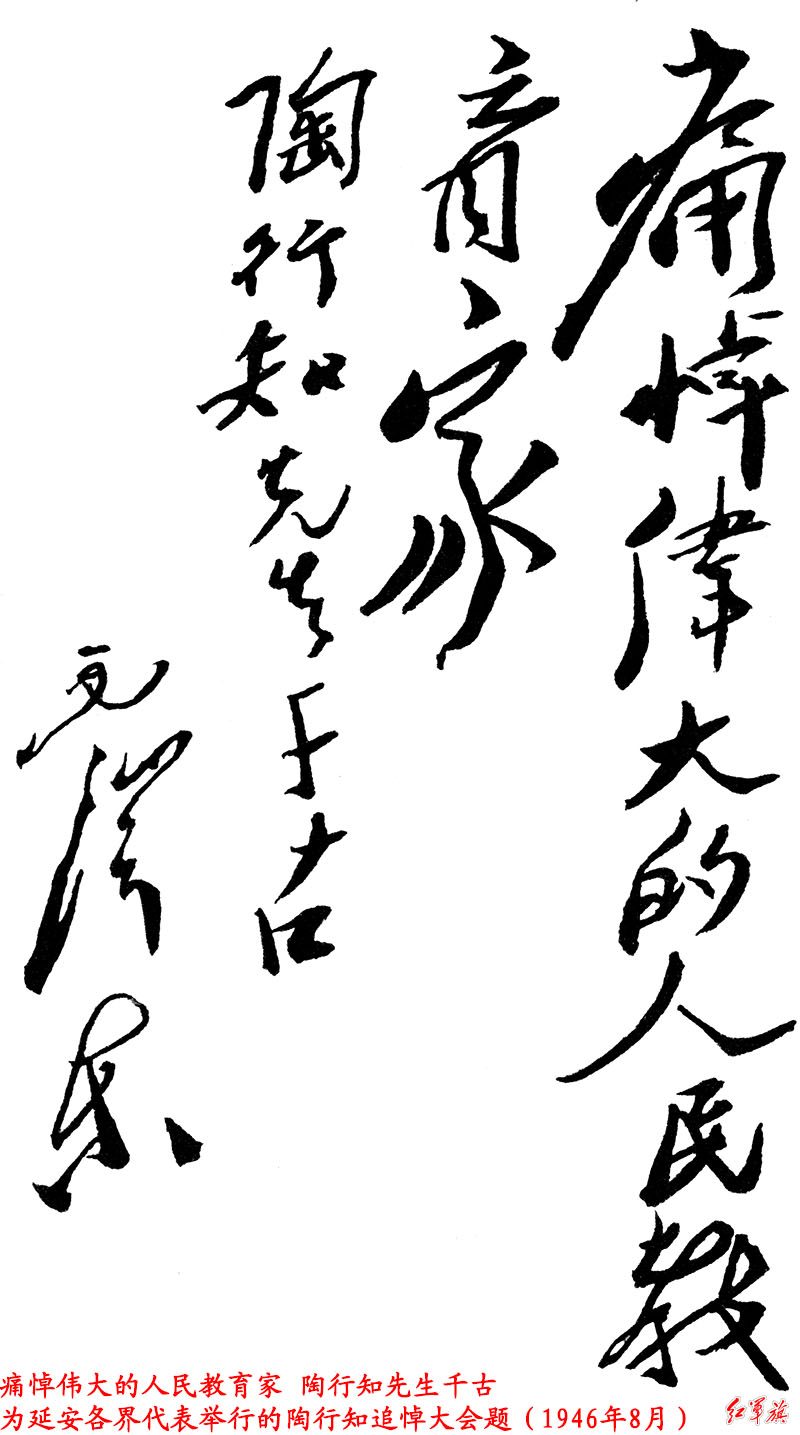 痛悼偉大的人民教
育家
陶行知先生千古
毛澤東
痛悼伟大的人民教育家 陶行知先生千古
为延安各界代表举行的陶行知追悼大会题（1946年8月）
红军旗